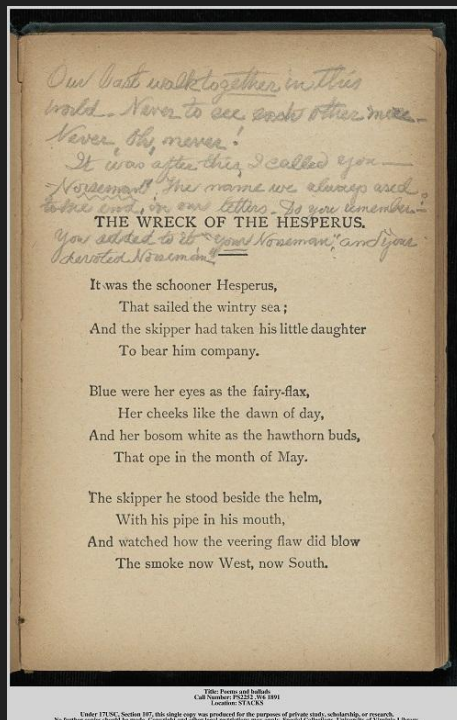 Our last walk together in this
world. Never to see each other more.
Never, Oh, never!
It was after this, I called you —
"Norseman" the name we always used,
to the end, in our letters. Do you remember —
THE WRECK OF THE HESPERUS.
You added to it "your Norseman," and "your
devoted Norseman"
It was the schooner Hesperus,
That sailed the wintry sea;
And the skipper had taken his little daughter
To bear him company.
Blue were her eyes as the fairy-flax,
Her cheeks like the dawn of day,
And her bosom white as the hawthorn buds,
That ope in the month of May.
The skipper he stood beside the helm,
With his pipe in his mouth,
And watched how the veering flaw did blow
The smoke now West, now South.
Title: Poems and ballads
Call Number: PS2252 .W6 1891
Location: STACKS
Under 17USC, Section 107, this single copy was produced for the purposes of private study, scholarship, or research.